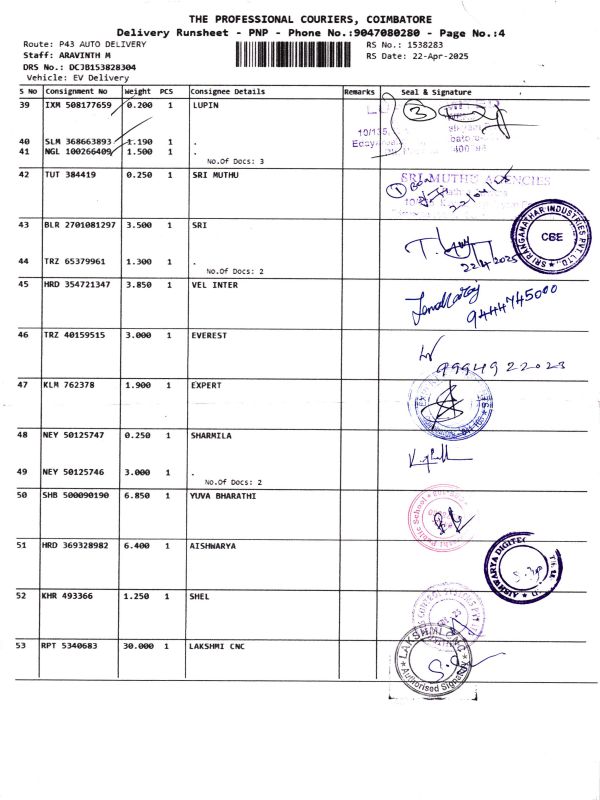 THE PROFESSIONAL COURIERS, COIMBATORE
Delivery Runsheet - PNP - Phone No.:9047080280 - Page No.:4
Route: P43 AUTO DELIVERY RS No.: 1538283
Staff: ARAVINTH M RS Date: 22-Apr-2025
DRS No.: DCJB153828304
Vehicle: EV Delivery
S No Consignment No Weight PCS Consignee Details Remarks Seal & Signature
39 IXM 508177659 0.200 1 LUPIN
3
10/135,
40 SLM 368663893 1.190 1 .
41 NGL 100266409 1.500 1 .
No.Of Docs: 3
42 TUT 384419 0.250 1 SRI MUTHU
SRI MUTHU AGENCIES
1
22/04/25
43 BLR 2701081297 3.500 1 SRI
SRI RANGANATHAR INDUSTRIES PVT. LTD.
CBE
44 TRZ 65379961 1.300 1 .
22/4/2025
No.Of Docs: 2
45 HRD 354721347 3.850 1 VEL INTER
9444745000
46 TRZ 40159515 3.000 1 EVEREST
9994922023
47 KLM 762378 1.900 1 EXPERT
48 NEY 50125747 0.250 1 SHARMILA
49 NEY 50125746 3.000 1 .
No.Of Docs: 2
50 SHB 500090190 6.850 1 YUVA BHARATHI
Public School
51 HRD 369328982 6.400 1 AISHWARYA
AISHWARYA DIGITEC
52 KHR 493366 1.250 1 SHEL
CONTROL SYSTEMS
53 RPT 5340683 30.000 1 LAKSHMI CNC
LAKSHMI CNC
Authorised Signatory